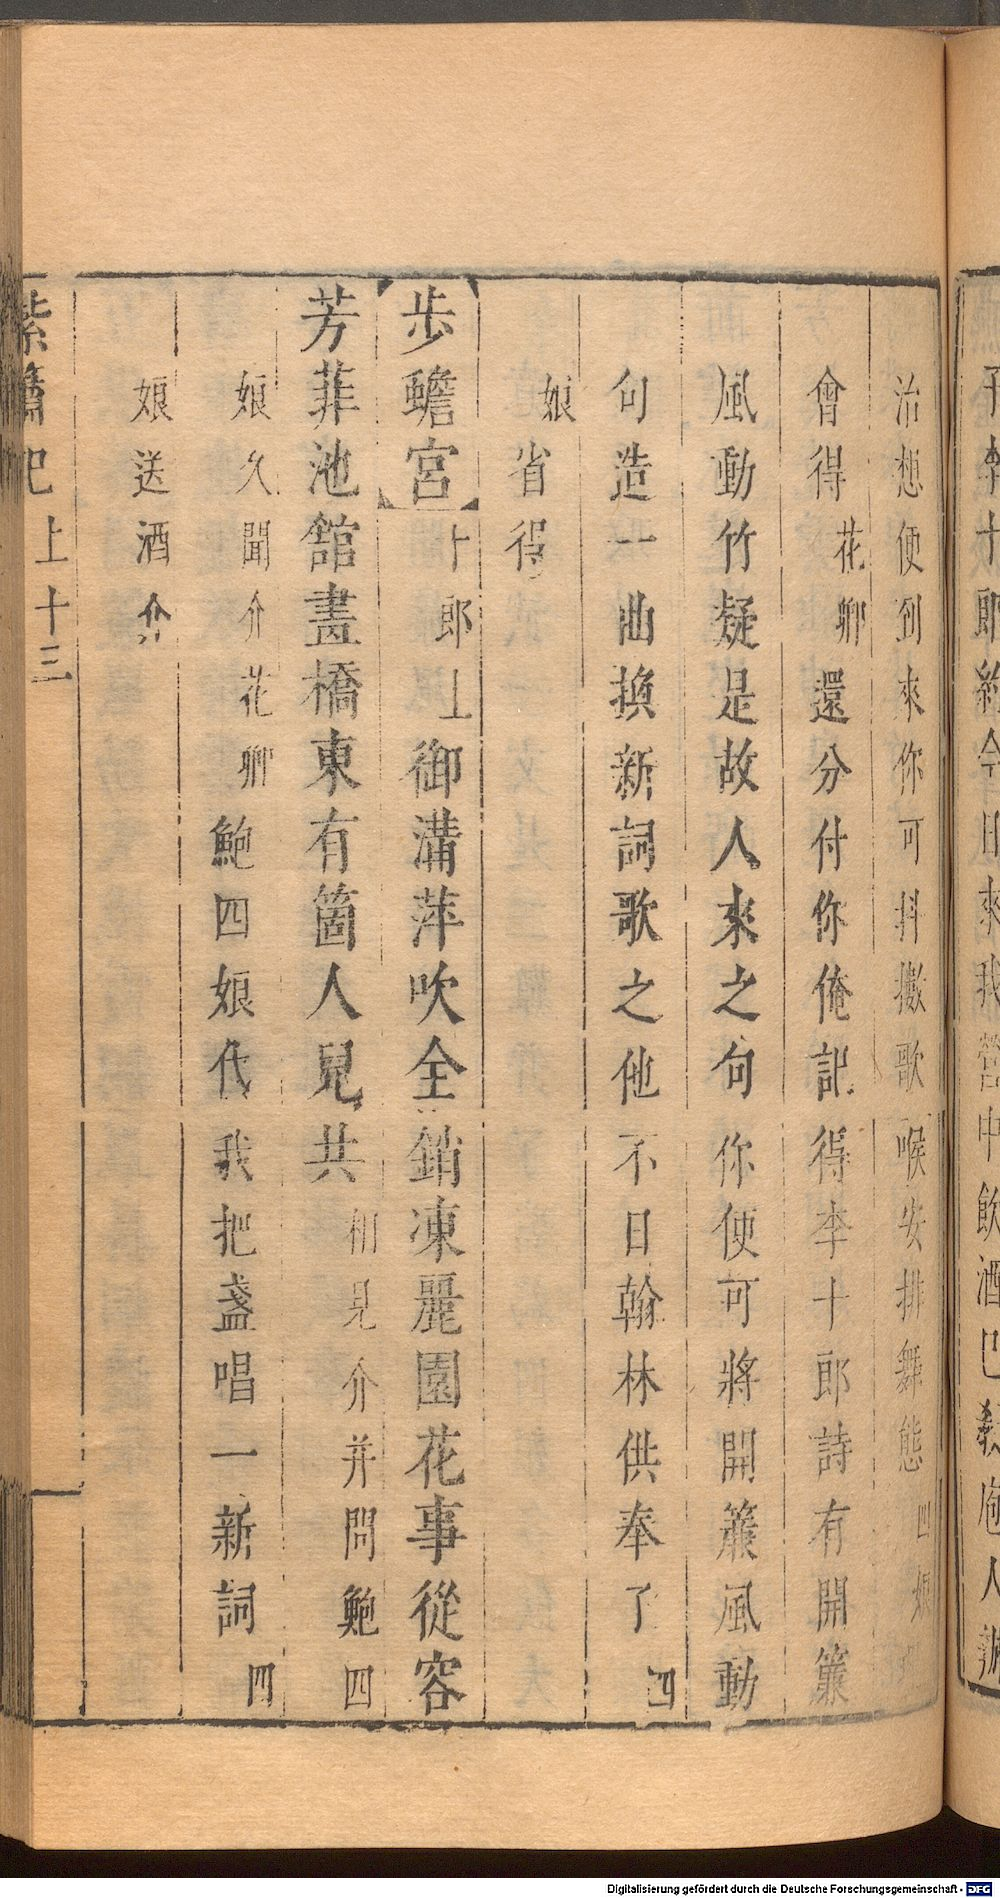 子李十郎約今日來我營中飲酒已教庖人
治想便到來你可抖擻歌喉安排舞態四娘
會得花卿還分付你俺記得李十郎詩有開簾
風動竹疑是故人來之句你便可將開簾風動
句造一曲換新詞歌之他不日翰林供奉了四
娘省得
步蟾宮十郎上御溝萍吹全銷凍麗園花事從容
芳菲池舘畫橋東有箇人兒共相見介并問鮑四
娘久聞介花卿鮑四娘代我把盞唱一新詞四
娘送酒介
紫簫記上十三
Digitalisierung gefördert durch die Deutsche Forschungsgemeinschaft - DFG